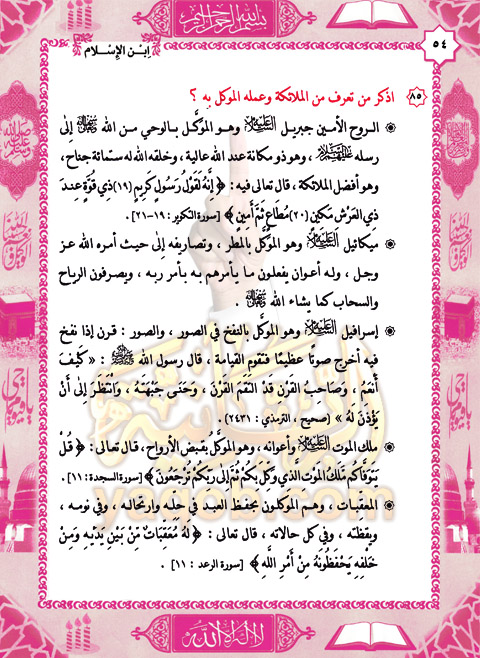 بسم الله الرحمن الرحيم
٥٤
ابن الإسلام
٨٥ اذكر من تعرف من الملائكة وعمله الموكل به ؟
الروح الأمين جبريل عليه السلام وهو الموَكَّل بالوحي من الله تعالى إلى
رسله عليهم السلام ، وهو ذو مكانة عند الله عالية ، وخلقه الله له ستمائة جناح،
وهو أفضل الملائكة ، قال تعالى فيه : ﴿ إِنَّهُ لَقَوْلُ رَسُولٍ كَرِيمٍ (١٩) ذِي قُوَّةٍ عِندَ
ذِي الْعَرْشِ مَكِينٍ (٢٠) مُطَاعٍ ثَمَّ أَمِينٍ ﴾ [سورة التكوير : ١٩-٢١].
ميكائيل عليه السلام وهو الموَكَّل بالمطر ، وتصاريفه إلى حيث أمره الله عز
وجل ، وله أعوان يفعلون ما يأمرهم به بأمر ربه ، ويصرفون الرياح
والسحاب كما يشاء الله تعالى .
إسرافيل عليه السلام وهو الموكَّل بالنفخ في الصور ، والصور : قرن إذا نفخ
فيه أخرج صوتًا عظيمًا فتقوم القيامة ، قال رسول الله ﷺ : « كَيْفَ
أَنْعَمُ ، وَصَاحِبُ القَرْنِ قَدْ التَقَمَ القَرْنَ ، وَحَنَى جَبْهَتَهُ ، وَانْتَظَرَ إِلى أَنْ
يُؤْذَنَ لَهُ » [صحيح ، الترمذي : ٢٤٣١] .
ملك الموت عليه السلام وأعوانه ، وهو الموكَّل بقبض الأرواح ، قال تعالى : ﴿ قُلْ
يَتَوَفَّاكُم مَّلَكُ الْمَوْتِ الَّذِي وُكِّلَ بِكُمْ ثُمَّ إِلَى رَبِّكُمْ تُرْجَعُونَ ﴾ [سورة السجدة : ١١] .
المعقبات ، وهم الموكلون بحفظ العبد في حِلِّه وارتحاله ، وفي نومه ،
ويقظته ، وفي كل حالاته ، قال تعالى : ﴿ لَهُ مُعَقِّبَاتٌ مِّنْ بَيْنِ يَدَيْهِ وَمِنْ
خَلْفِهِ يَحْفَظُونَهُ مِنْ أَمْرِ اللَّهِ ﴾ [سورة الرعد : ١١] .
yaqob.com
لا إله إلا الله